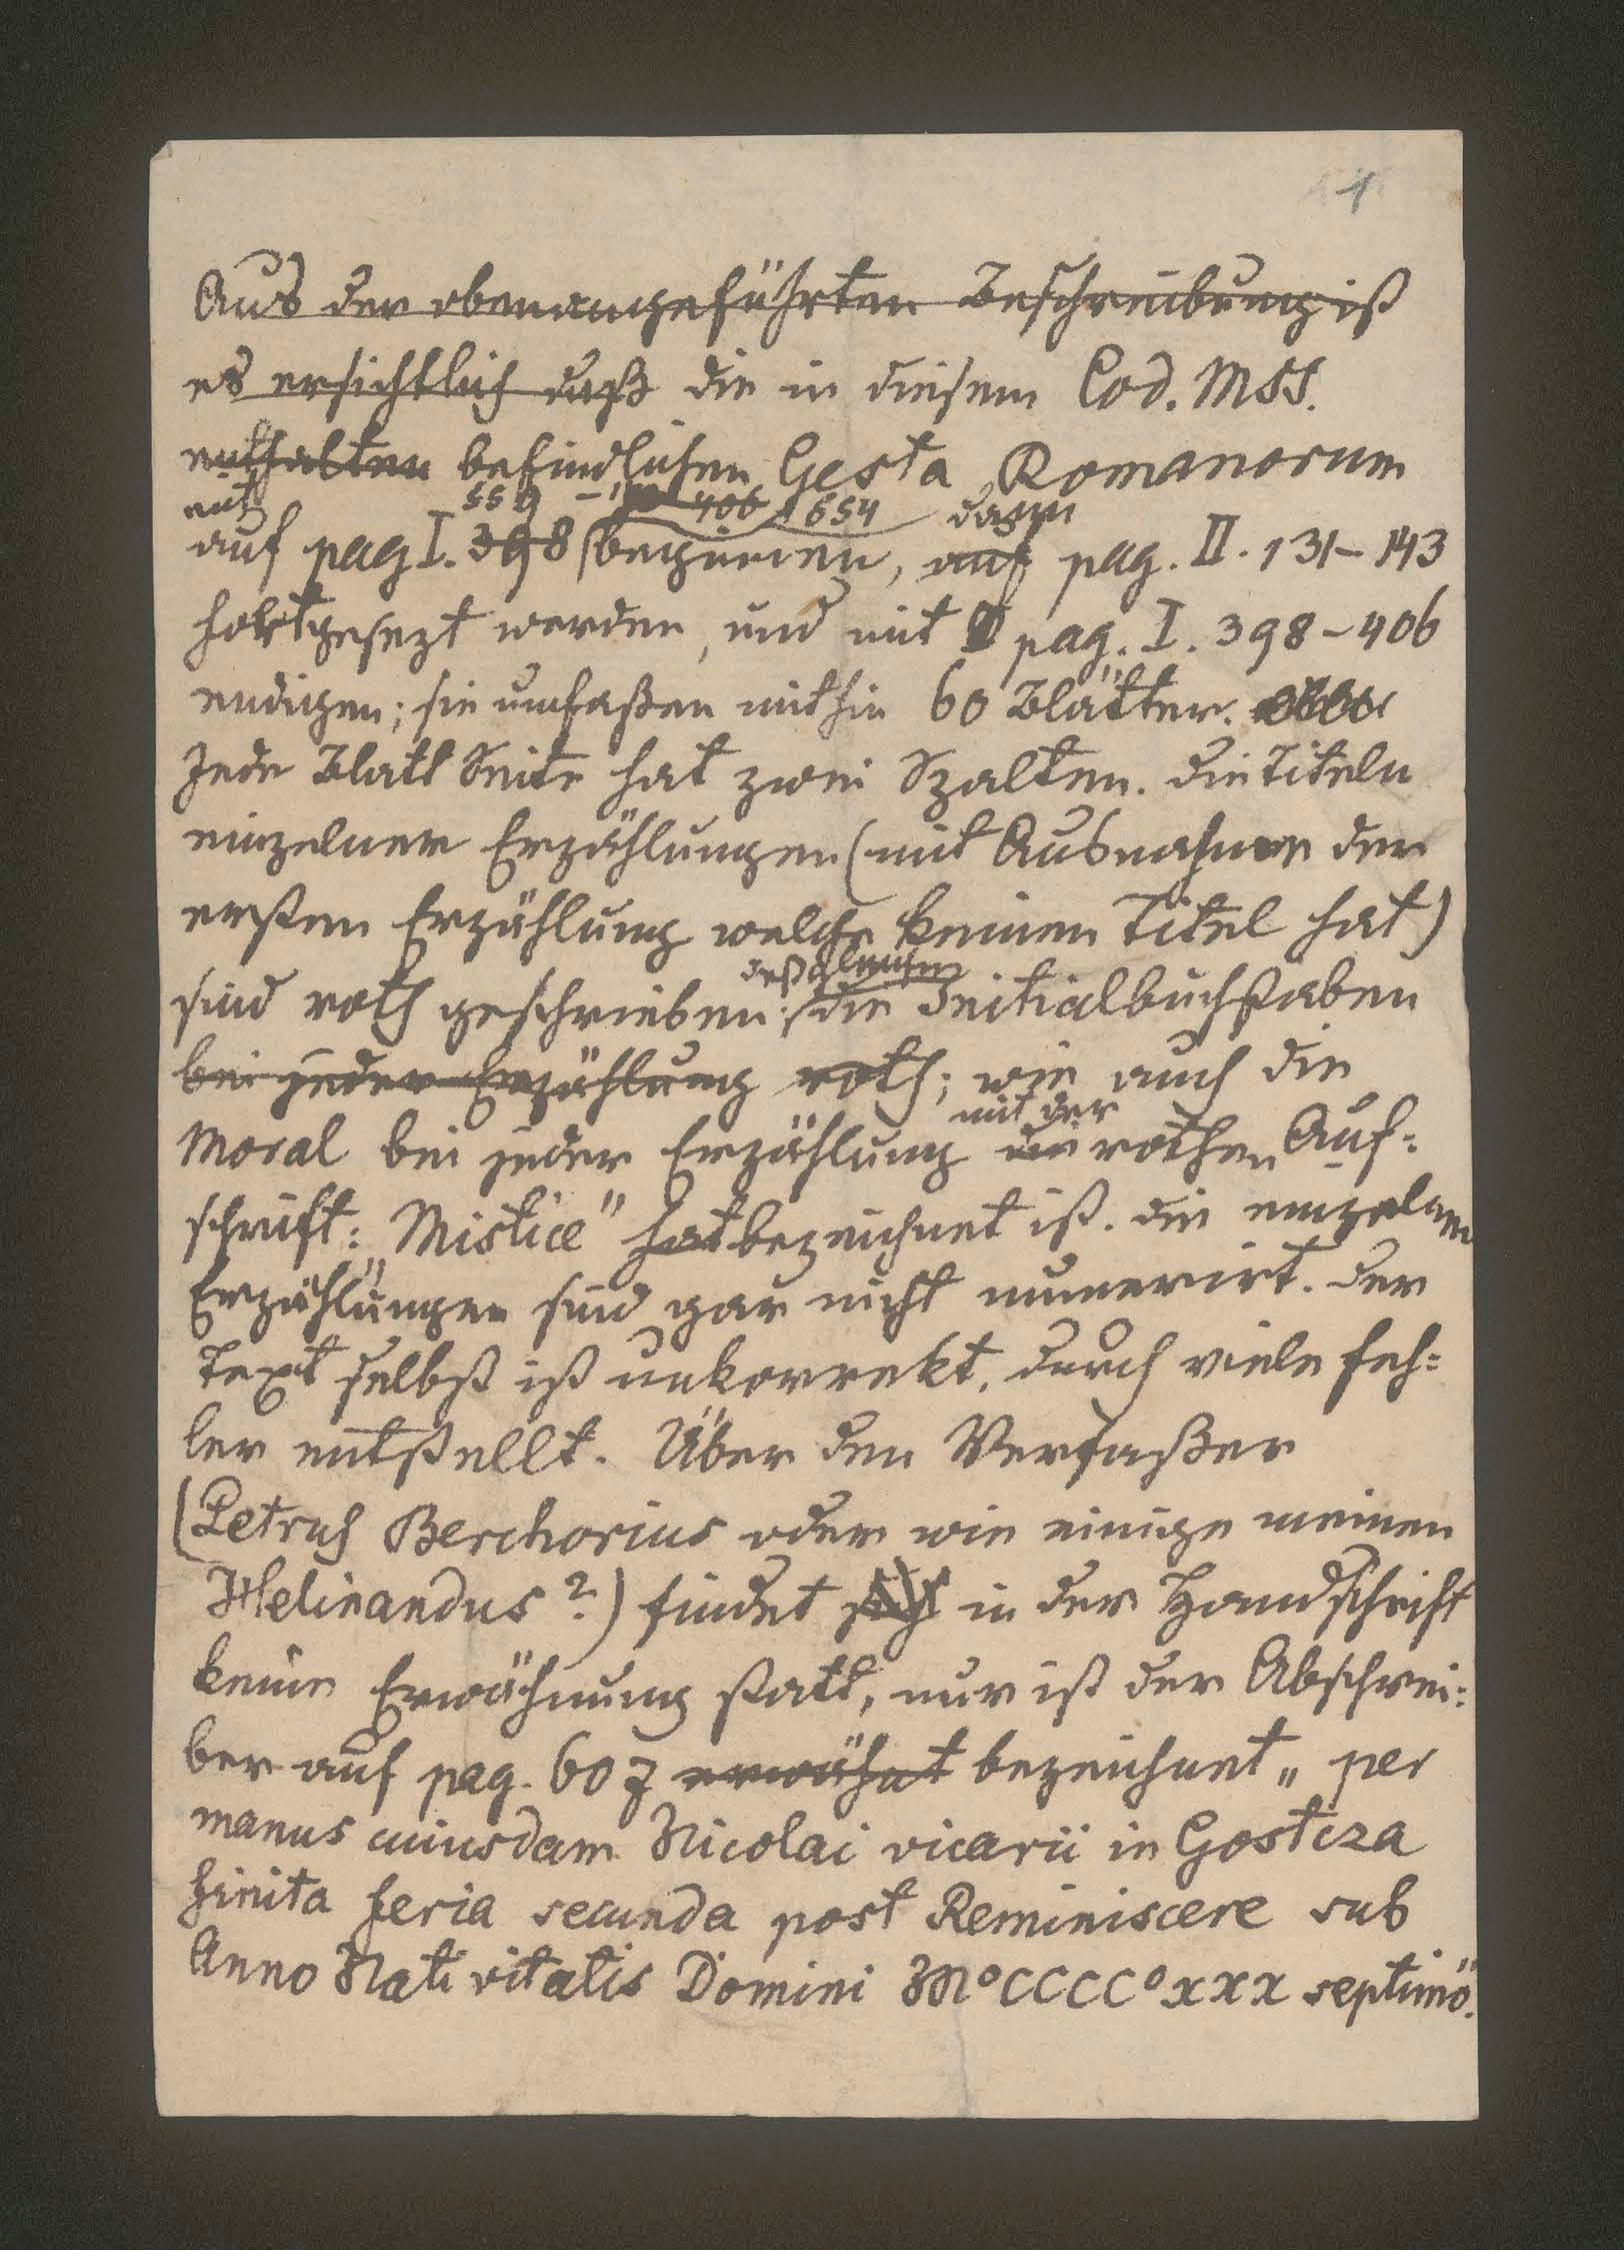 1
Aus der obenangeführten Beschreibung ist
es ersichtlich daß die in diesem Cod. MSS.
enthalten befindlichen Gesta Romanorum
mit 559 – 406 654 dann
auf pag I. 398 beginnen, auf pag. II. 131–143
fortgesezt werden, und mit pag. I. 398–406
endigen; sie umfaßen mithin 60 Blätter.
Jede Blatt Seite hat zwei Spalten. die Titeln
einzelner Erzählungen (mit Ausnahme der
ersten Erzählung welche keinen Titel hat)
deßgleichen
sind roth geschrieben; die Initialbuchstaben
bei jeder Erzählung roth; wie auch die
mit der
Moral bei jeder Erzählung die rothen Auf=
schrift: „Mistice" hat bezeichnet ist. die einzelnen
Erzählungen sind gar nicht numerirt. der
Text selbst ist unkorrekt, durch viele Feh=
ler entstellt. Über den Verfaßer
(Petrus Berchorius oder wie einige meinen
Helinandus?) findet sich in der Handschrift
keine Erwähnung statt, nur ist der Abschrei=
ber auf pag. 607 erwähnt bezeichnet „per
manus cuiusdam Nicolai vicarii in Gostcza
finita feria secunda post Reminiscere sub
Anno Nativitatis Domini M°CCCC°xxx septimo".